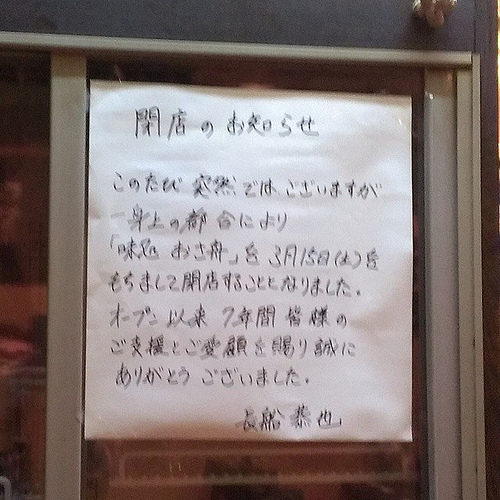 閉店のお知らせ
このたび 突然ではございますが
一身上の都合により
「味処 おさ舟」を 3月15日(土)を
もちまして閉店することとなりました。
オープン以来 7年間 皆様の
ご支援とご愛顧を賜り誠に
ありがとう ございました。
長船 恭也